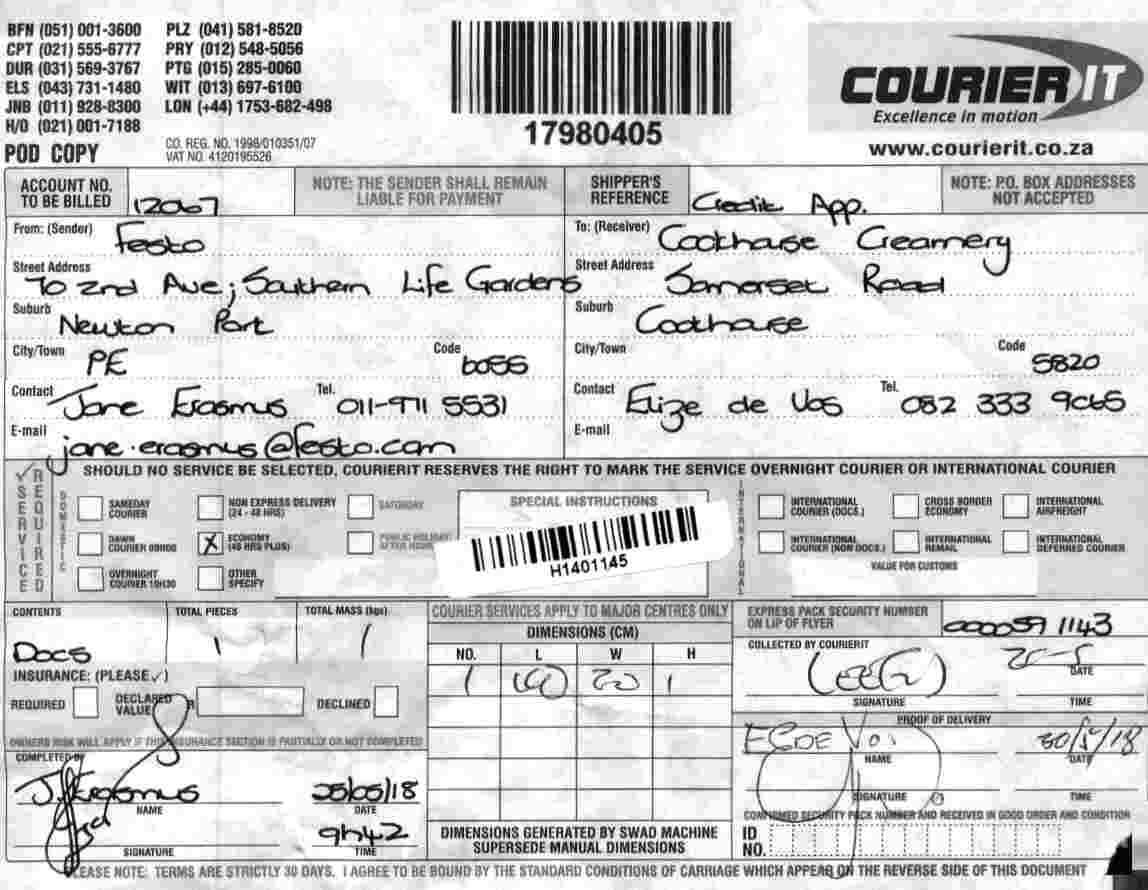 BFN (051) 001-3600 PLZ (041) 581-8520
CPT (021) 555-6777 PRY (012) 548-5056
DUR (031) 569-3767 PTG (015) 285-0060
ELS (043) 731-1480 WIT (013) 697-6100
JNB (011) 928-8300 LON (+44) 1753-682-498
H/O (021) 001-7188
POD COPY
CO. REG. NO. 1998/010351/07
VAT NO. 4120195526
17980405
COURIER IT
Excellence in motion
www.courierit.co.za
ACCOUNT NO. TO BE BILLED 12067
NOTE: THE SENDER SHALL REMAIN LIABLE FOR PAYMENT
SHIPPER'S REFERENCE Credit App.
NOTE: P.O. BOX ADDRESSES NOT ACCEPTED
From: (Sender) Festo
Street Address 70 2nd Ave; Southern Life Gardens
Suburb Newton Park
City/Town PE Code 6055
Contact Jane Erasmus Tel. 011-971 5531
E-mail jane.erasmus@festo.com
To: (Receiver) Cookhouse Creamery
Street Address Somerset Road
Suburb Cookhouse
City/Town Code 5820
Contact Elize de Vos Tel. 082 333 9065
E-mail
SERVICE REQUIRED
SHOULD NO SERVICE BE SELECTED, COURIERIT RESERVES THE RIGHT TO MARK THE SERVICE OVERNIGHT COURIER OR INTERNATIONAL COURIER
DOMESTIC
SAMEDAY COURIER
NON EXPRESS DELIVERY (24 - 48 HRS)
SATURDAY
DAWN COURIER 09H00
X ECONOMY (48 HRS PLUS)
PUBLIC HOLIDAY AFTER HOURS
OVERNIGHT COURIER 10H30
OTHER SPECIFY
SPECIAL INSTRUCTIONS
H1401145
INTERNATIONAL
INTERNATIONAL COURIER (DOCS.)
CROSS BORDER ECONOMY
INTERNATIONAL AIRFREIGHT
INTERNATIONAL COURIER (NON DOCS.)
INTERNATIONAL REMAIL
INTERNATIONAL DEFERRED COURIER
VALUE FOR CUSTOMS
CONTENTS Docs
TOTAL PIECES 1
TOTAL MASS (kgs) 1
INSURANCE: (PLEASE ✓)
REQUIRED DECLARED VALUE R DECLINED
OWNERS RISK WILL APPLY IF THIS INSURANCE SECTION IS PARTIALLY OR NOT COMPLETED
COMPLETED BY
J. Erasmus 25/05/18
NAME DATE
9h42
SIGNATURE TIME
COURIER SERVICES APPLY TO MAJOR CENTRES ONLY
DIMENSIONS (CM)
NO. L W H
1 20 1
DIMENSIONS GENERATED BY SWAD MACHINE
SUPERSEDE MANUAL DIMENSIONS
EXPRESS PACK SECURITY NUMBER ON LIP OF FLYER
COLLECTED BY COURIERIT
25-5
DATE
SIGNATURE TIME
PROOF OF DELIVERY
E C DE Vos 30/5/18
NAME DATE
SIGNATURE TIME
CONFIRMED SECURITY PACK NUMBER AND RECEIVED IN GOOD ORDER AND CONDITION
ID NO.
PLEASE NOTE: TERMS ARE STRICTLY 30 DAYS. I AGREE TO BE BOUND BY THE STANDARD CONDITIONS OF CARRIAGE WHICH APPEAR ON THE REVERSE SIDE OF THIS DOCUMENT